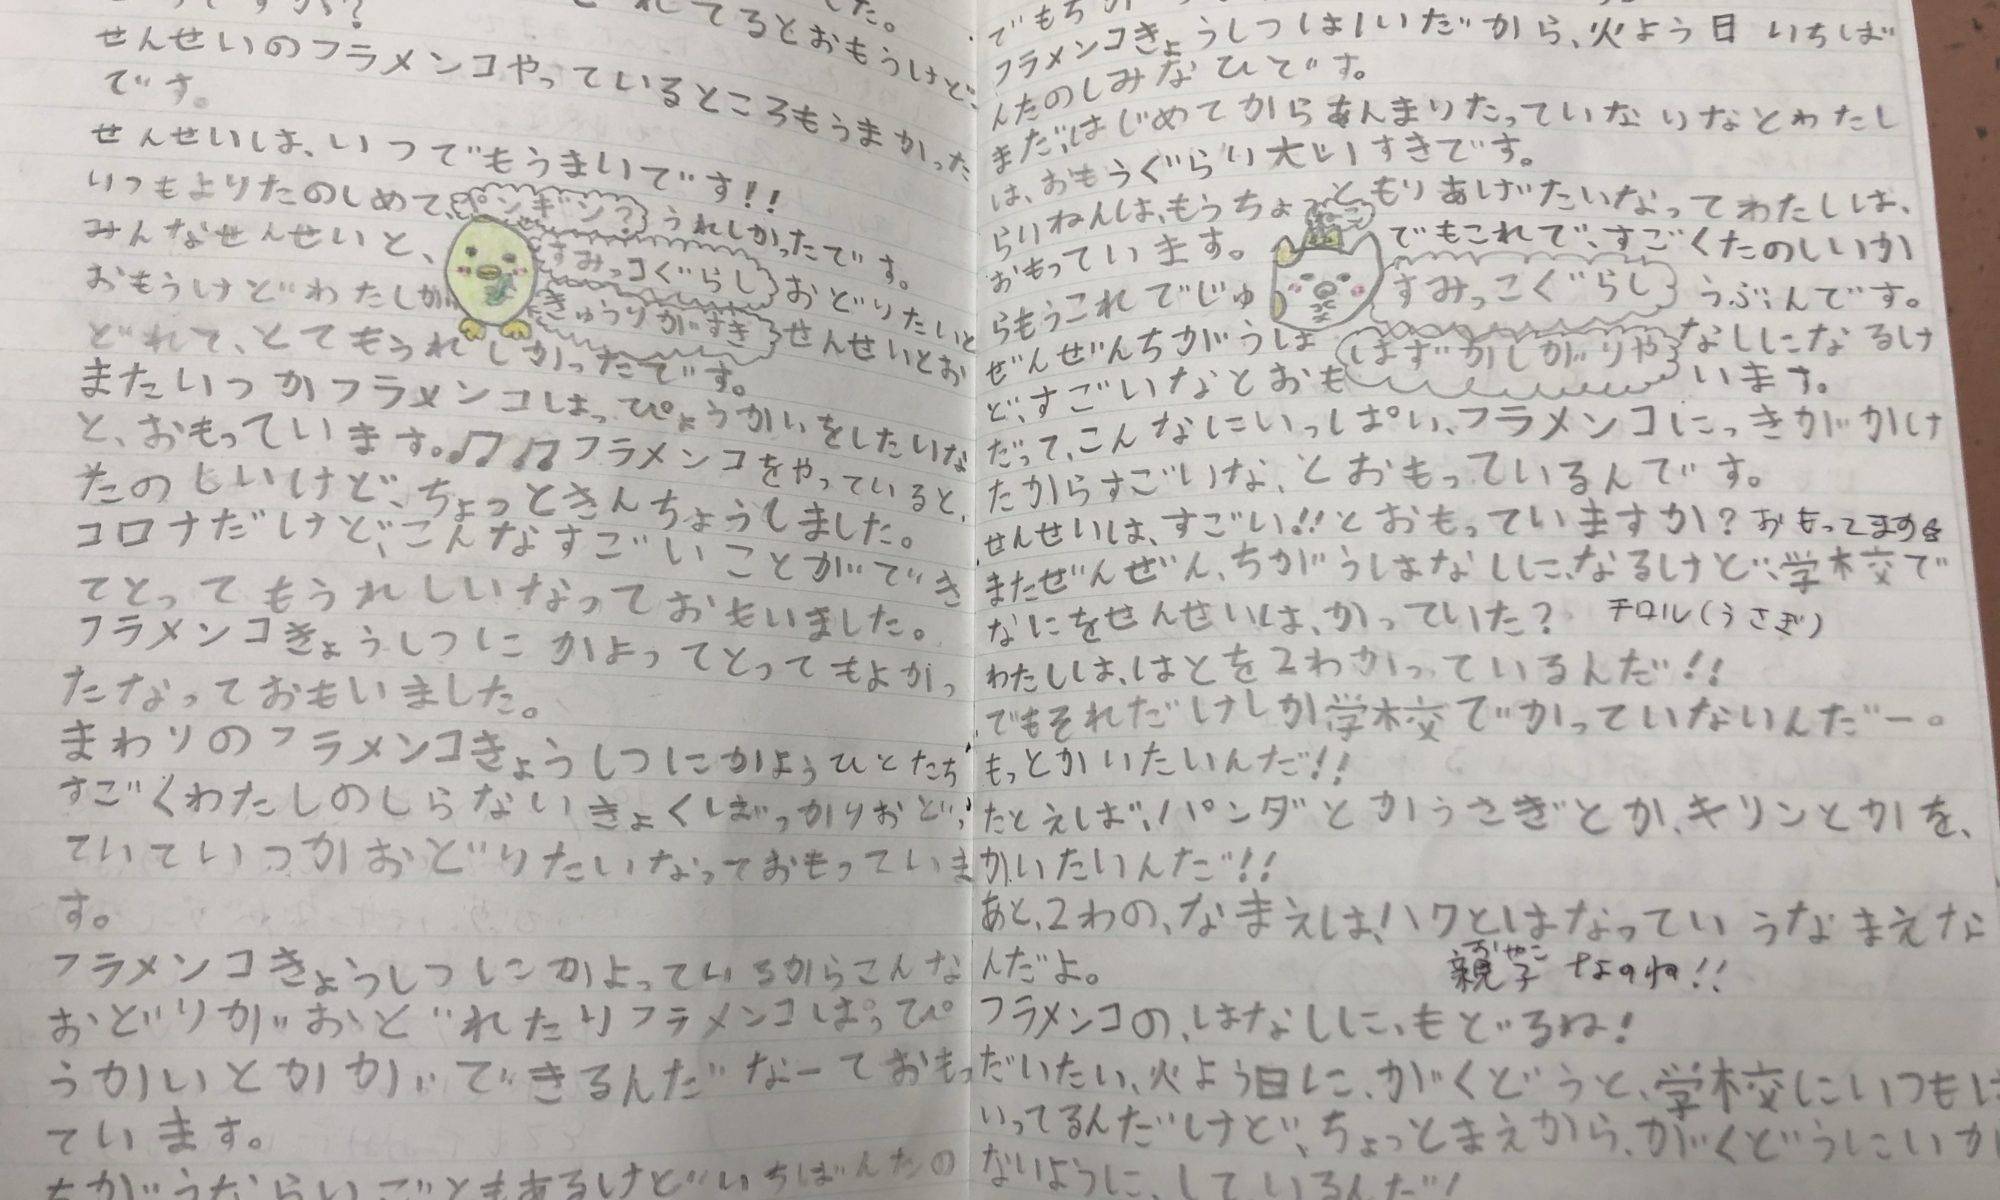 せんせいのフラメンコやっているところもうまかった
です。
せんせいは、いつでもうまいです!!
いつもよりたのしめて、うれしかったです。
ペンギン?
みんなせんせいと、おどりたいと
すみっコぐらし
おもうけどわたしがせんせいとお
きゅうりがすき
どれて、とてもうれしかったです。
またいつかフラメンコはっぴょうかいをしたいな
と、おもっています。♫♫フラメンコをやっていると、
たのしいけど、ちょっときんちょうしました。
コロナだけど、こんなすごいことができ
てとってもうれしいなっておもいました。
フラメンコきょうしつにかよってとってもよかっ
たなっておもいました。
まわりのフラメンコきょうしつにかようひとたち
すごくわたしのしらないきょくばっかりおどっ
ていていつかおどりたいなっておもっていま
す。
フラメンコきょうしつにかよっているからこんな
おどりがおどれたりフラメンコはっぴ
うかいとかができるんだなーておもっ
ています。
ちがうならいごともあるけどいちばんたの
でもち
フラメンコきょうしつは1いだから、火よう日いちば
んたのしみなひです。
まだ、はじめてからあんまりたっていないなとわたし
は、おもうぐらい大いすきです。
らいねんは、もうちょっともりあげたいなってわたしは、
おもっています。でもこれで、すごくたのしいか
ねこ
らもうこれでじゅうぶんです。
すみっこぐらし
ぜんぜんちがうはなしになるけ
はずかしがりや
ど、すごいなとおもいます。
だって、こんなにいっぱい、フラメンコにっきがかけ
たからすごいな、とおもっているんです。
せんせいは、すごい!!とおもっていますか?おもってます☆
またぜんぜん、ちがうはなしに、なるけど、学校で
なにをせんせいは、かっていた? チロル(うさぎ)
わたしは、はとを2わかっているんだ!!
でもそれだけしか学校でかっていないんだー。
もっとかいたいんだ!!
たとえば、パンダとかうさぎとか、キリンとかを、
かいたいんだ!!
あと、2わの、なまえは、ハクとはなっていうなまえな
んだよ。
親子なのね!!
おやこ
フラメンコの、はなしに、もどるね!
だいたい、火よう日に、がくどうと、学校にいつもは
いってるんだけど、ちょっとまえから、がくどうにいか
ないように、しているんだ!